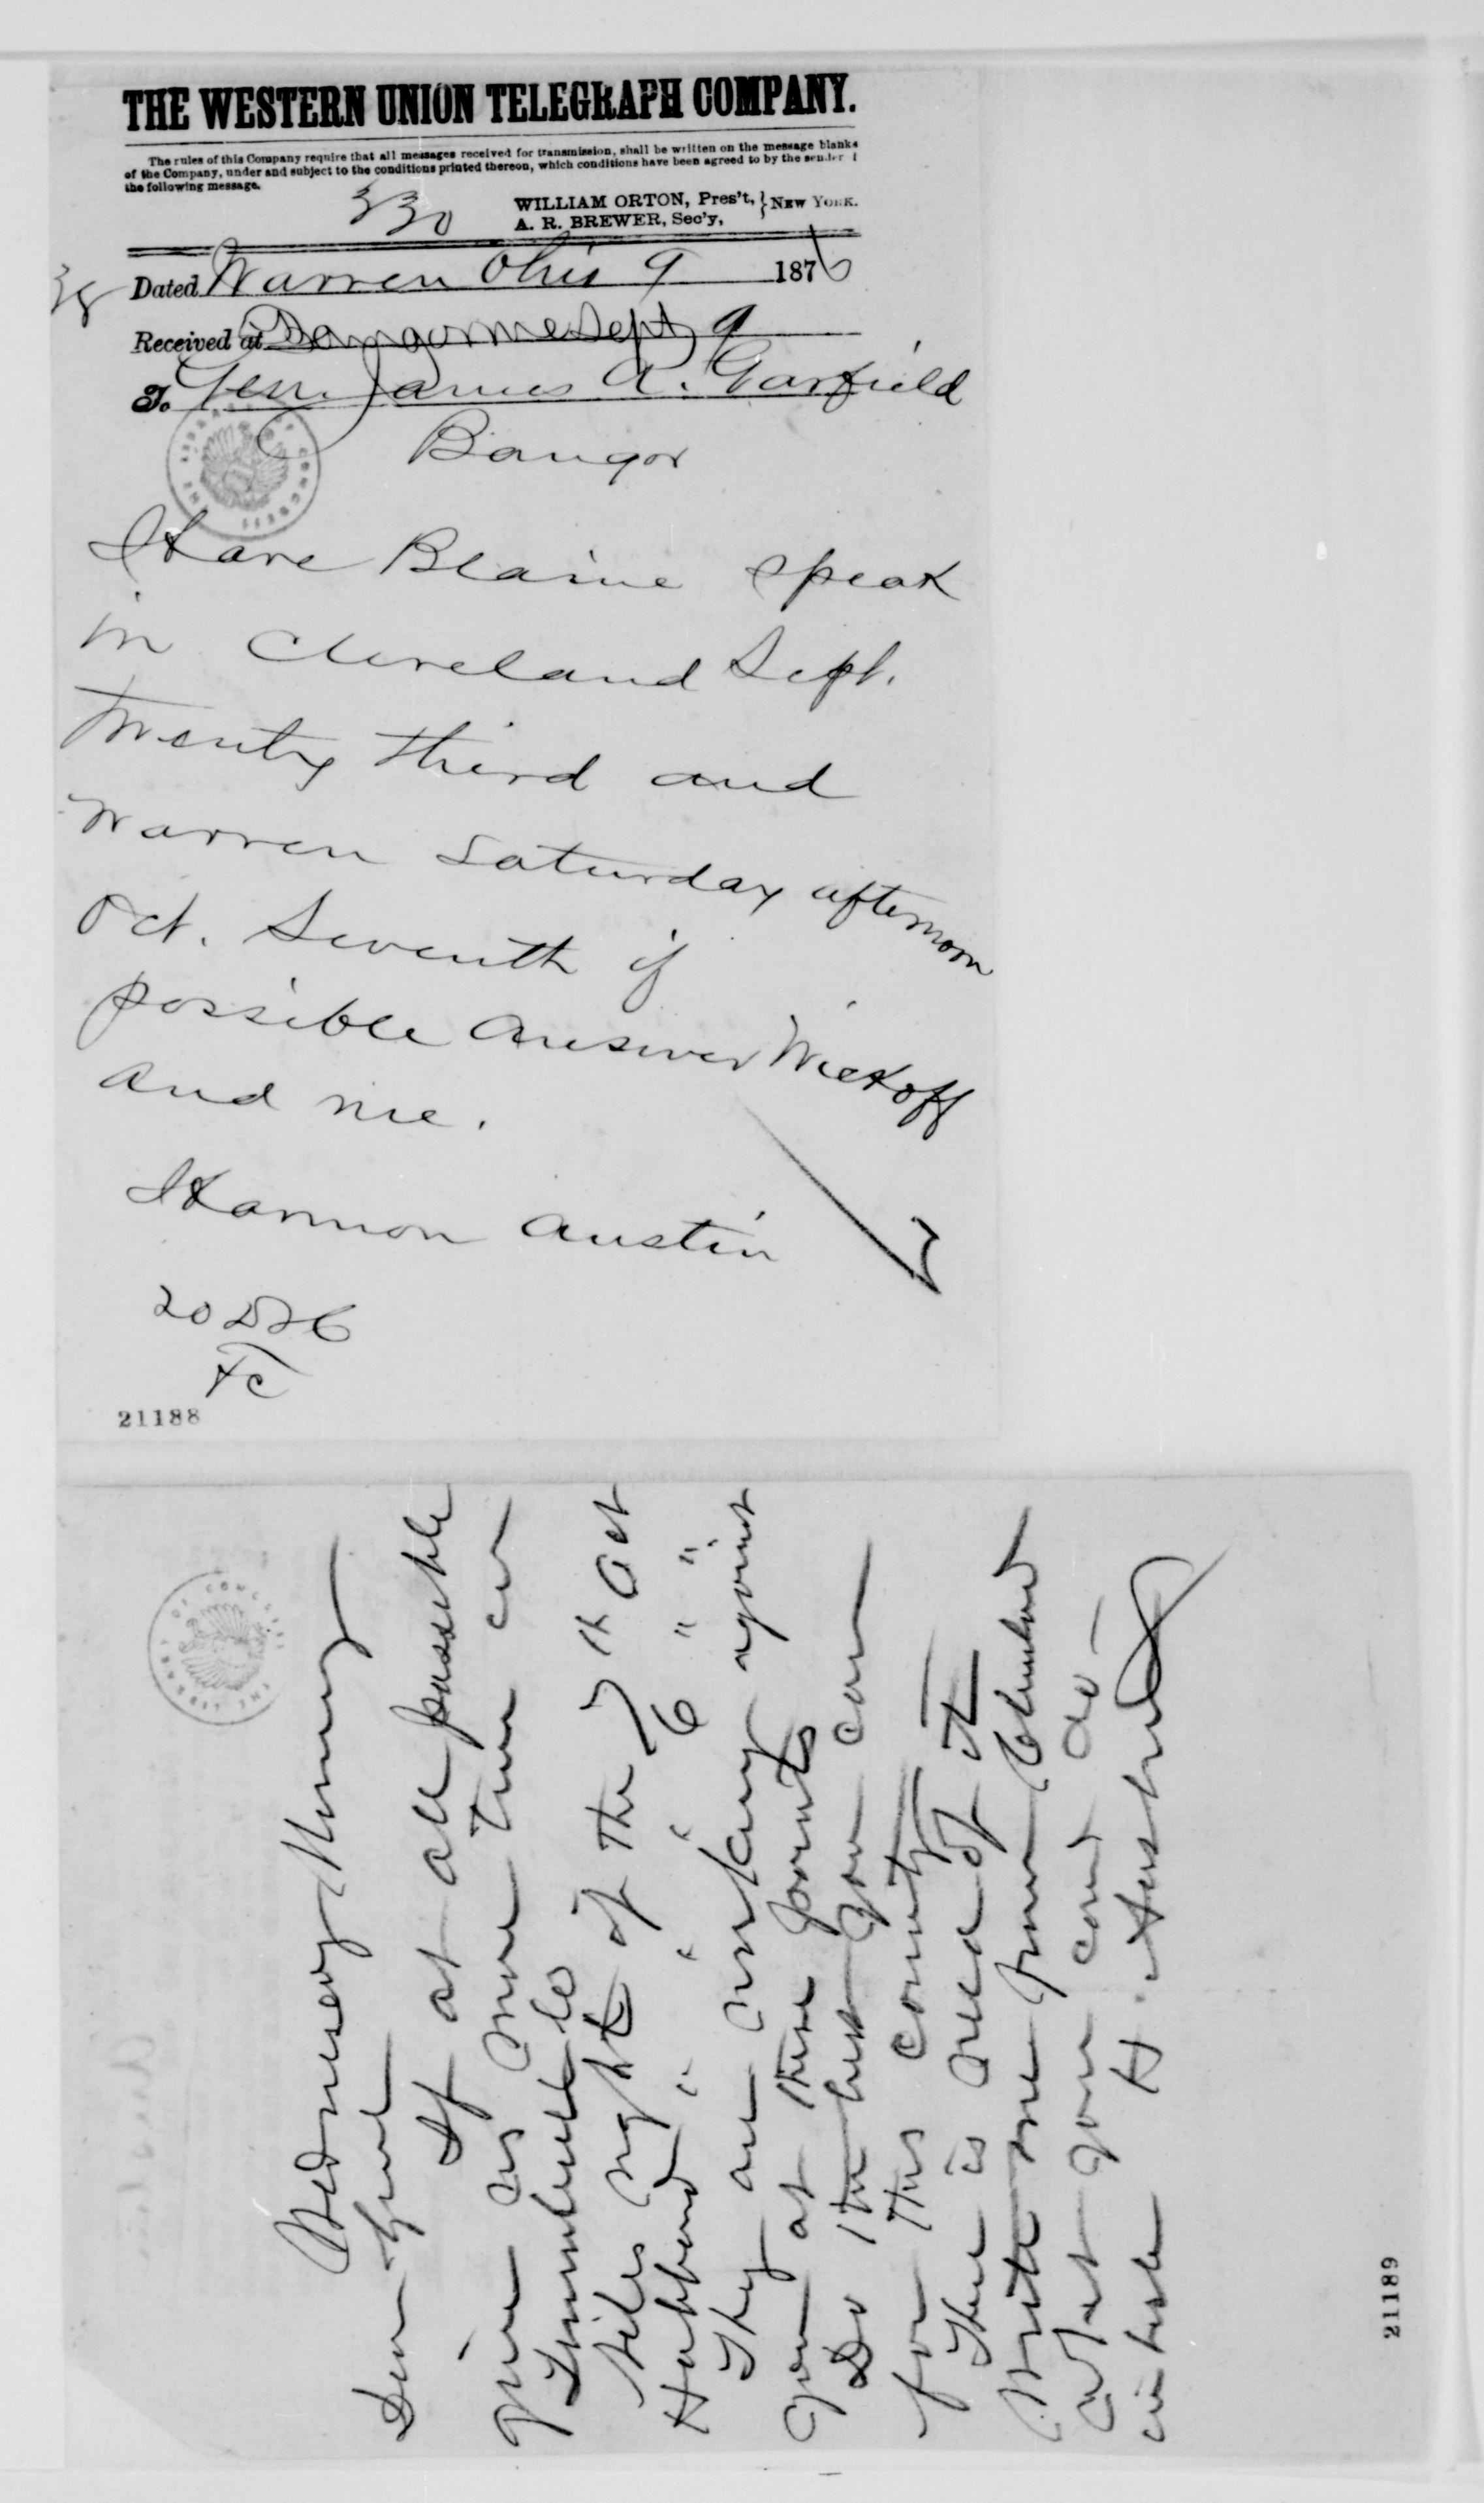 THE WESTERN UNION TELEGRAPH COMPANY.
The rules of this Company require that all messages received for transmission, shall be written on the message blanks
of the Company, under and subject to the conditions printed thereon, which conditions have been agreed to by the sender
the following message.
330
WILLIAM ORTON, Pres't, } NEW YORK.
A. R. BREWER, Sec'y,
38
Dated Warren Ohio 9 1876
Received at Bangor Me Sept 9
To Gen. James A. Garfield
Bangor
Have Blaine speak
in Cleveland Sept.
Twenty third and
Warren Saturday afternoon
Oct. Seventh if
possible answer Wickoff
and me.
Harmon Austin
20
21188
Wednesday Morning
Dear Genl
If at all possible
give us more time in
Trumbull Co
Niles night of the 7th Oct
Hubbard " " " 6 " "
They are working against
you at these points
Do the best you can
for this County
There is need of it
Write me from Cleveland
what you can do -
in haste H. Austin
21189